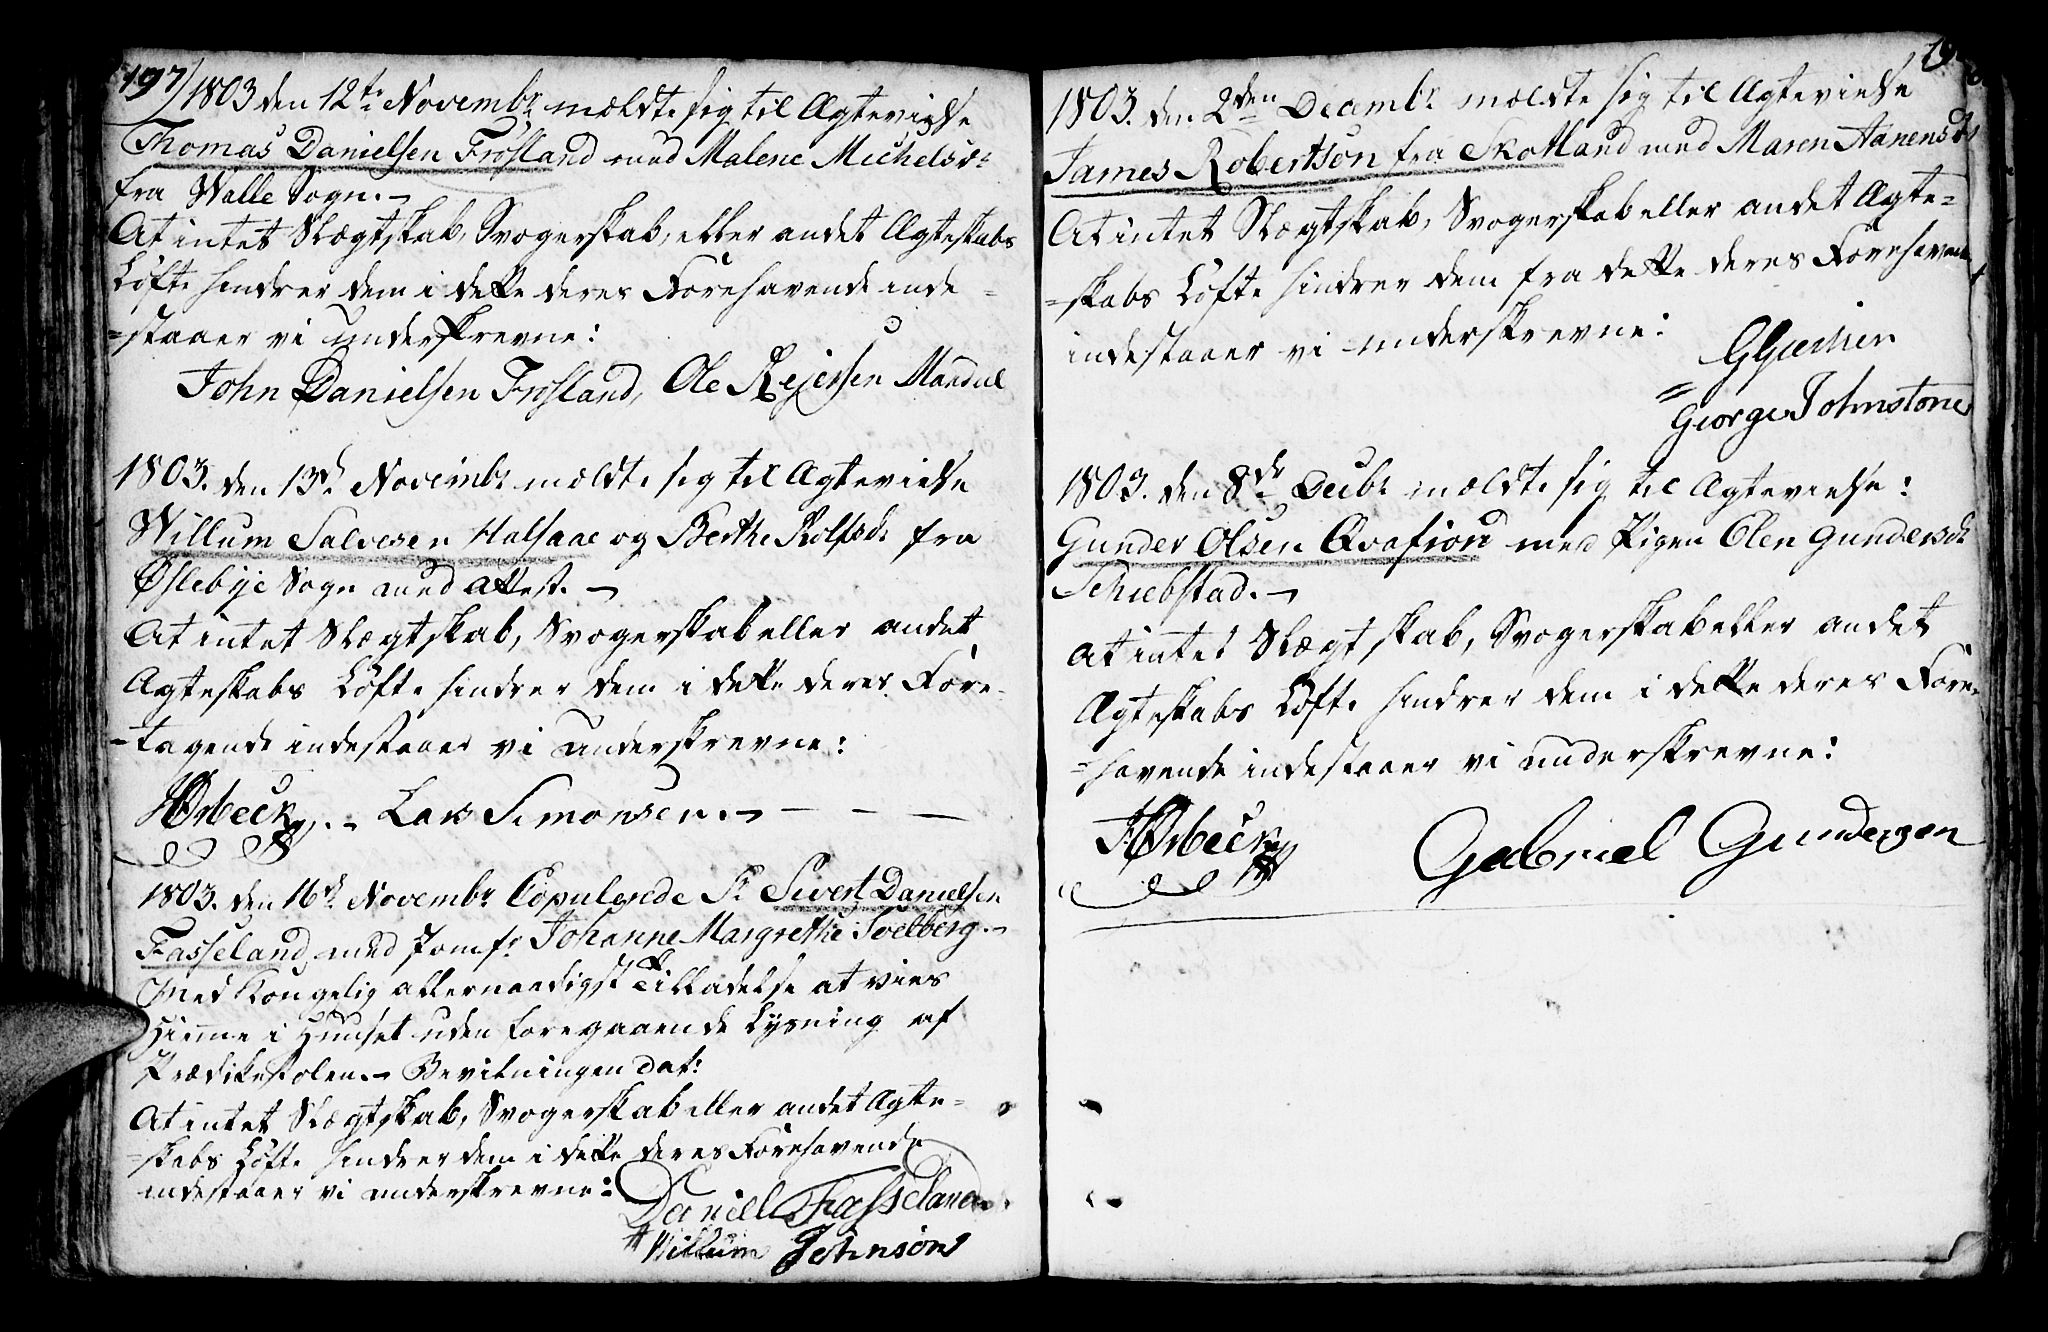 197/
1803 den 12te Novembr mældte sig til Ægtevielse
Thomas Danielsen Frøsland med Malene Michelsdr
fra Walle Sogn.
At intet Slægtskab, Svogerskab, eller andet Ægteskabs
Løfte hindrer dem i dette deres Forehavende inde=
=staaer vi underskrevne:
John Danielsen Frosland, Ole Rejersen Mandal
1803. den 13d Novembr mældte sig til Ægtevielse
Willum Salvesen Halsaae og Berthe Rolfsdr fra
Øslebye Sogn med Attest.
At intet Slægtskab, Svogerskab eller andet
Ægteskabs Løfte hindrer dem i dette deres Fore-
-tagende indestaaer vi underskrevne:
HØrbeck. Lars Simonsen.
1803. den 16d Novembr Copulerede Sr Sivert Danielsen
Fasseland med Jomfr Johanne Margrethe Soelberg.
Med Kongelig allernaadigst Tilladelse at vies
hieme i Huuset uden foregaaende Lysning af
Prædikestolen. Bevilningen dat:
At intet Slægtskab, Svogerskab eller andet Ægte=
=skabs Løfte hindrer dem i dette deres Forehavende
indestaaer vi underskrevne:
Daniell Fasseland
Willum Johnson
1803. den 2den Decembr mældte sig til Ægtevielse
James Robertson fra Skotland med Maren Aanensdr
At intet Slægtskab, Svogerskab eller andet Ægte=
=skabs Løfte hindrer dem fra dette deres Forehavende
indestaaer vi underskrevne:
George Johnstone
1803. den 8de Decbr mældte sig til Ægtevielse:
Gunder Olsen Qvafiord med Pigen Elen Gundersdr
Schiebstad.
At intet Slægtskab, Svogerskab eller andet
Ægteskabs Løfte hindrer dem i dette deres Fore-
=havende indestaaer vi underskrevne:
HØrbeck Gabriel Gunderson